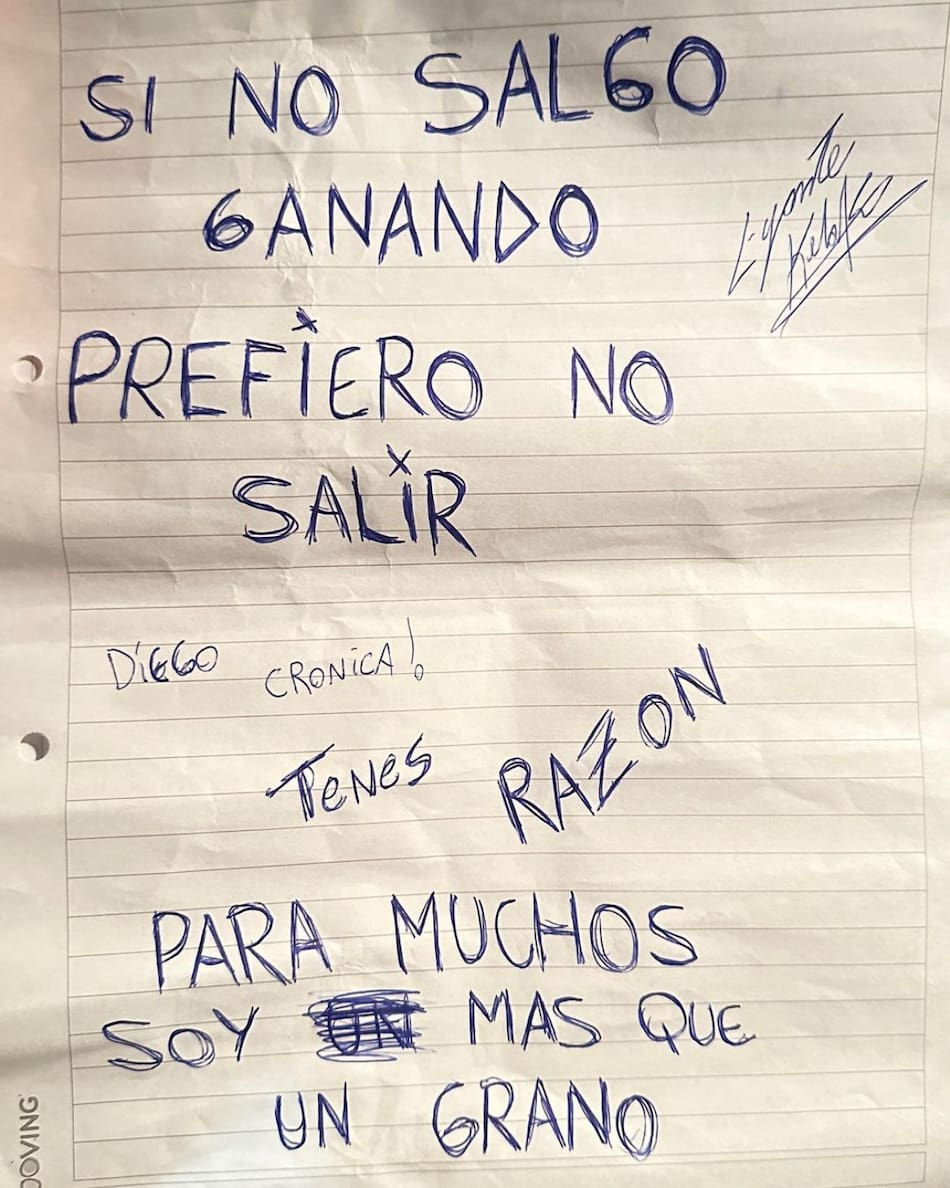 SI NO SALGO
GANANDO
PREFiERO NO
SALiR
DiEGO CRONiCA!
TeNES RAZON
PARA MUCHOS
SOY UN MAS QUE
UN GRANO
OOVING